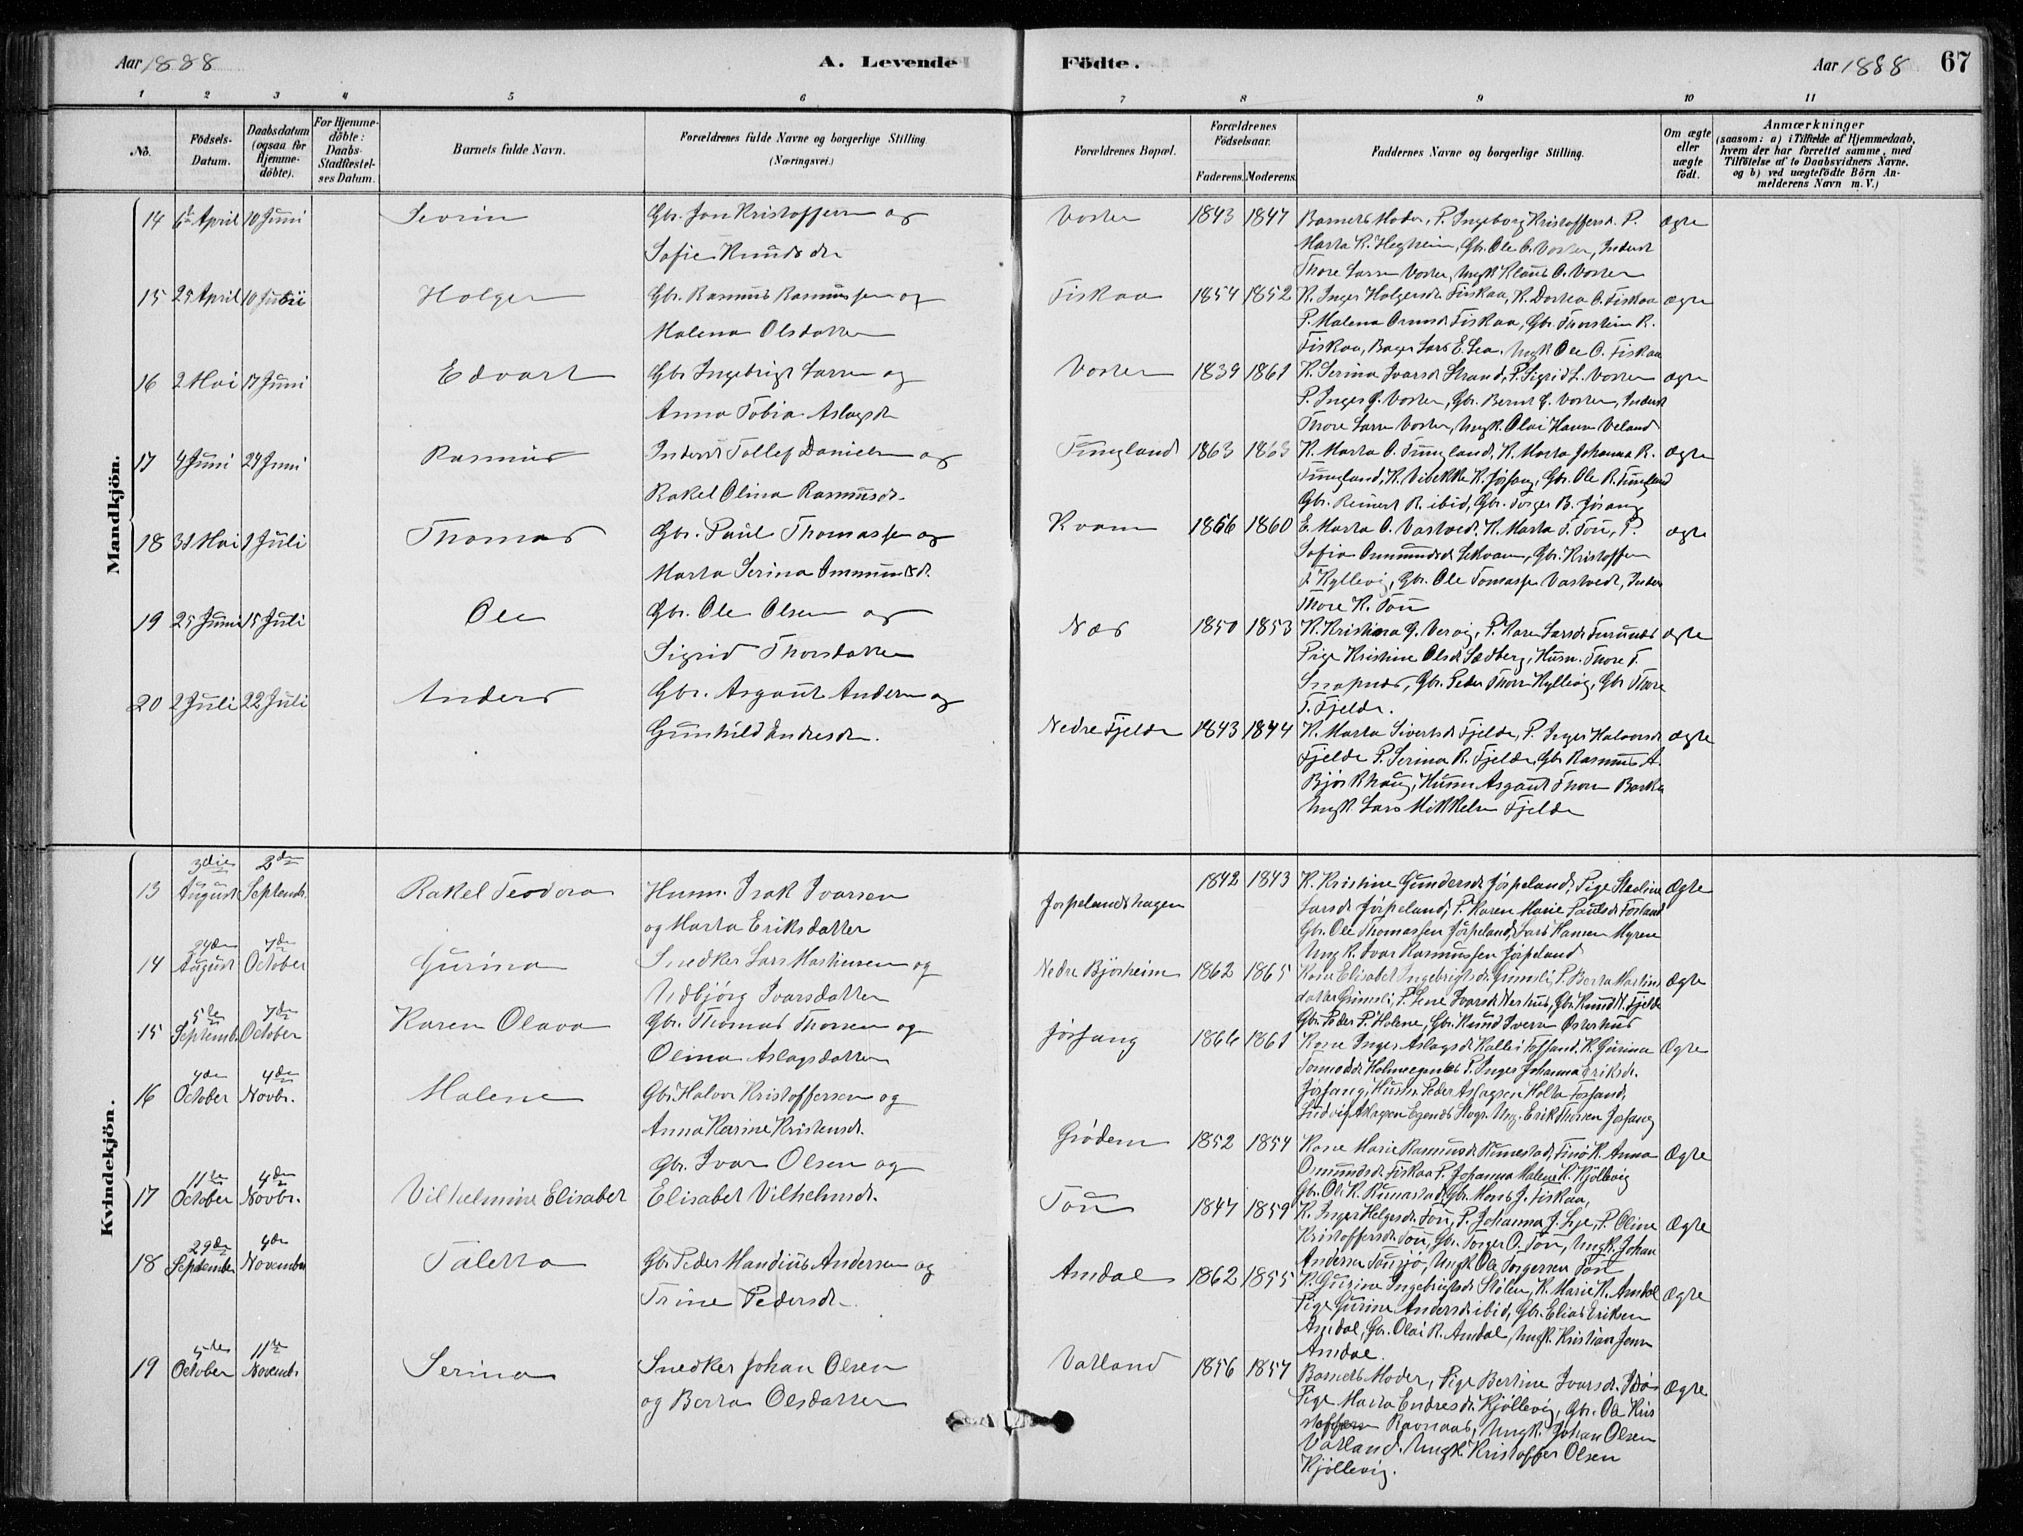 Aar 1888
A. Levende
Födte.
Aar 1888
67
1 2 3 4 5 6 7 8 9 10 11
No.
Födsels-Datum.
Daabsdatum (ogsaa for Hjemme-döbte).
For Hjemme-döbte: Daabs-Stadfæstel-ses Datum.
Barnets fulde Navn.
Forældrenes fulde Navne og borgerlige Stilling (Næringsvei.)
Forældrenes Bopæl.
Forældrenes Födselsaar.
Faderens. Moderens.
Faddernes Navne og borgerlige Stilling.
Om ægte eller uægte födt.
Anmærkninger
(saasom: a) i Tilfælde af Hjemmedaab, hvem der har forrettet samme, med Tilföielse af to Daabsvidners Navne. og b) ved uægtefödte Börn An-melderens Navn m. V.)
Mandkjön.
14 6te April 10 Juni
Gbr. Jon Kristoffersen og
Sofie Knudsdr
Voster 1843 1847
Barnets Moder, P. Ingeborg Kristoffersd. P.
Marta K. Hegheim, Gbr. Ole O. Voster, Inderst
Thore Larsen Voster, Ungk. Klaus O. Voster
ægte
15 25 April 10 Juni
Holger
Gbr. Rasmus Rasmussen og
Malena Olsdatter
Fiskaa 1854 1852
K. Inger Holgersdr Fiskaa, K. Dortea O. Fiskaa
P. Malena Fiskaa, Gbr. Thorstein R.
Fiskaa, Lars E. Lea, Ungk. Ole O. Fiskaa
ægte
16 2 Mai 17 Juni
Edvart
Gbr Ingebrigt Larsen og
Anna Tobia Aslagsdr
Voster 1839 1861
K. Serina Ivarsdr Strand, P. Sigrid L. Voster
P. Inger G. Voster, Gbr. Bernt G. Voster, Inderst
Thore Larsen Voster, Ungk. Olai Veland
ægte
17 4 Juni 24 Juni
Rasmus
Inderst Tollef Danielsen og
Rakel Olina Rasmusdr.
Tungland 1863 1863
K. Marta O. Tungland, K. Marta Johanna R.
Tungland, K. Vibekke K. Jøssang, Gbr. Ole R. Tungland
Gbr. Reinert R. ibid, Gbr. Torger B. Jøssang
ægte
18 31 Mai 1 Juli
Thomas
Gbr. Paul Thomassen og
Marta Serina
Kvam 1866 1860
E. Marta O. Vastvedt, K. Marta T. Tou, P.
Sofia, Gbr. Kristoffer
T. Kyllevig, Gbr. Ole Tomassen Vastvedt,
Thore K. Tou
ægte
19 25 Juni 15 Juli
Ole
Gbr. Ole Olsen og
Sigrid Thorsdatter
Næs 1850 1853
K. Kristina G. Vervig, P. Karen Larsdr
Pige Kristine Olsdr Sedberg, Husm. Thore T.
Gbr. Peder Thorsen Kyllevig, Gbr Thore
T. Fjelde.
ægte
20 2 Juli 22 Juli
Anders
Gbr. Asgaut Andersen og
Gunhild Endresdr.
Nedre Fjelde 1843 1844
K. Marta Sivertsdr Fjelde, P. Inger Halvorsdr
Fjelde P. Serina R. Fjelde, Gbr Rasmus A.
Bjørkhaug, Husm Asgaut Thorsen Barka
Ungk. Lars Mikkelsen Fjelde
ægte
Kvindekjön.
13 3die August 2den Septembr.
Rakel Teodora
Husm. Isak Ivarsen
og Marta Eriksdatter
Jørpelandshagen 1842 1843
K. Kristine Gundersdr Jørpeland, Pige
Larsdr Jørpeland, P. Karen Marie Paulsdr
Gbr. Ole Thomassen Jørpeland, Lars Hansen Myrene
Ungk. Ivar Rasmussen Jørpeland
Ægte
14 24de August 7de October
Gurina
Snedker Lars Martinsen og
Vedbjørg Ivarsdatter
Nedre Bjørheim 1862 1865
Kone Elisabet Ingebrigtsdr Grimsli, P. Berta Martins
datter Grimsli, P. Lene Ivarsdr, Gbr. Knud K. Fjelde
Gbr. Peder P. Holene, Gbr. Knud Iversen Østerhus
Ægte
15 5te Septembr. 7de October
Karen Olava
Gbr. Thomas Thorsen og
Olina Aslagsdatter
Jøssang 1866 1861
Kone Inger Aslagsdr, K. Gurina
P. Inger Johanna Eriksdr.
Jøssang, Husm. Peder Aslagsen Holta Fossand,
Ludvig Aslagsen, Ung. Erik Thorsen Jøssang
Ægte
16 4de October 4de Novbr.
Malene
Gbr. Halvor Kristoffersen og
Anna Karine Kristensdr.
Grødem 1852 1854
Kone Marie Rasmusdr, K. Anna
Osmundsdr Fiskaa P. Johanna Malene K. Kjøllevig
Gbr. Ole K., Gbr. Mons J. Fiskaa,
Ægte
17 11te October 4de Novbr.
Vilhelmine Elisabet
Gbr. Ivar Olsen og
Elisabet Vilhelmsdr.
Tou 1847 1859
K. Inger Helgesdr. Tou, P. Johanna J. Lye, P. Oline
Kristoffersdr Tou, Gbr. Torger O. Tou, Ungk. Johan
Andersen Tousjø, Ungk Ole Torgersen Tou
Ægte
18 29de September 4de November
Taletta
Gbr. Peder Mandius Andersen og
Trine Pedersdr.
Amdal 1862 1855
K. Gurine Ingebrigtsdr Stølen, K. Marie K. Amdal
Pige Gurine Andersdr ibid, Gbr. Elias Eriksen
Amdal, Gbr. Olai R. Amdal, Ungk. Kristian Jensen
Amdal.
Ægte
19 5te October 11te Novembr.
Serina
Snedker Johan Olsen
og Berta Olsdatter
Vatland 1856 1857
Barnets Moder, Pige Bertine Ivarsdr.
Pige Marta Endresdr. Kjøllevig, Gbr. Ole Kris
toffersen Ravnaas, Ungk. Johan Olsen
Vatland. Ungk. Kristoffer Olsen
Kjøllevig.
Ægte